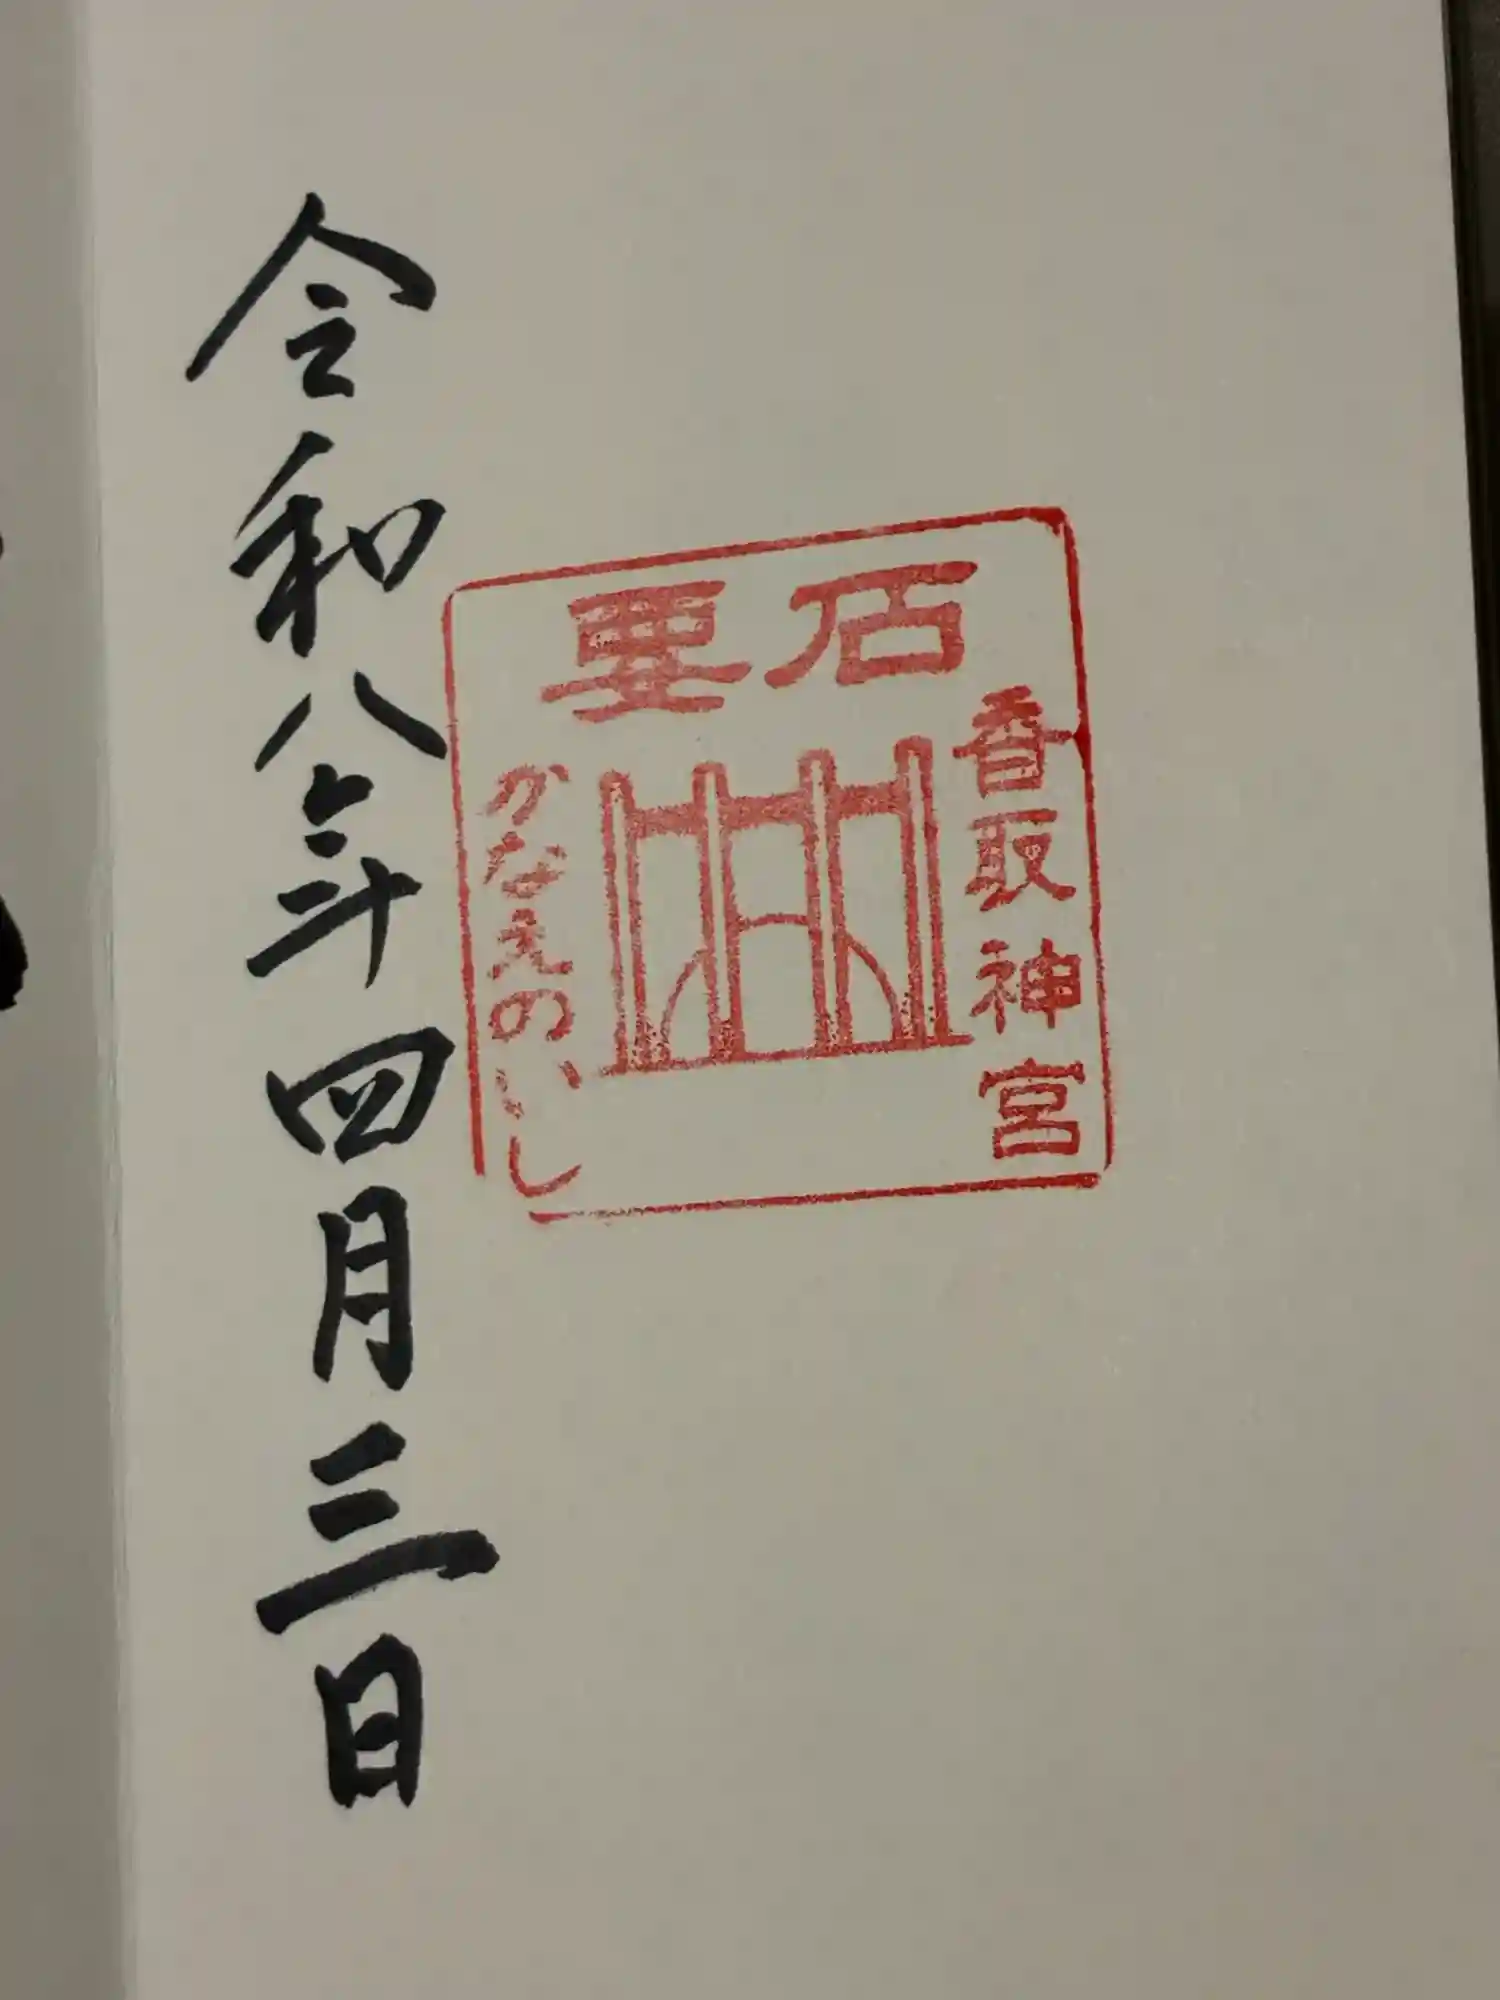 要石
香取神宮
かなえのいし
令和八年四月三日